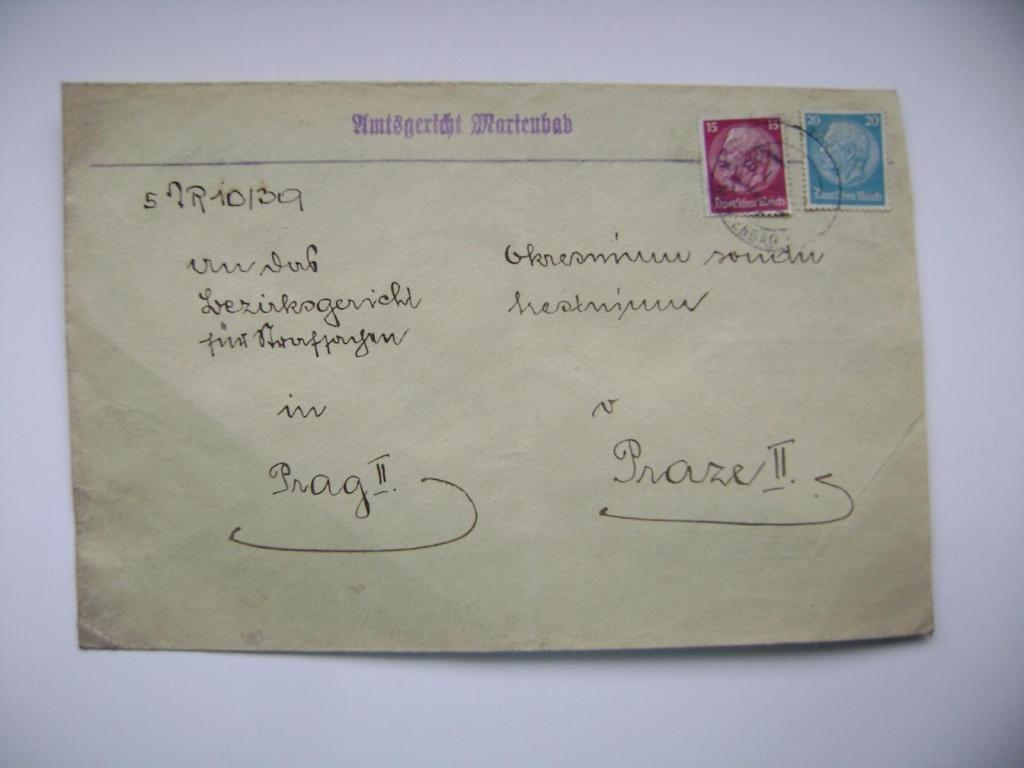 Amtsgericht Marienbad
15 15
Deutsches Reich
20 20
Deutsches Reich
5 JR 10/39
An das
Bezirksgericht
für Strafsachen
in
Prag II.
Okresnimu soudu
trestnimu
v
Praze II.